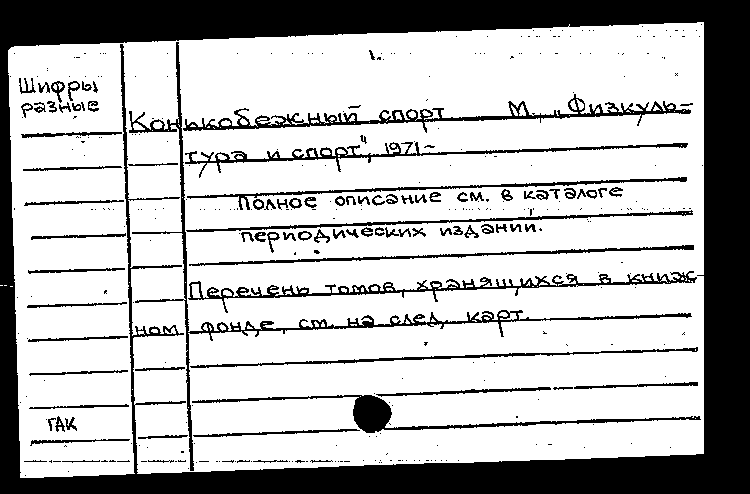 1.
Шифры
разные
Конькобежный спорт М., „Физкуль-
тура и спорт", 1971-
Полное описание см. в каталоге
периодических изданий.
Перечень томов, хранящихся в книж-
ном фонде, см. на след. карт.
ГАК